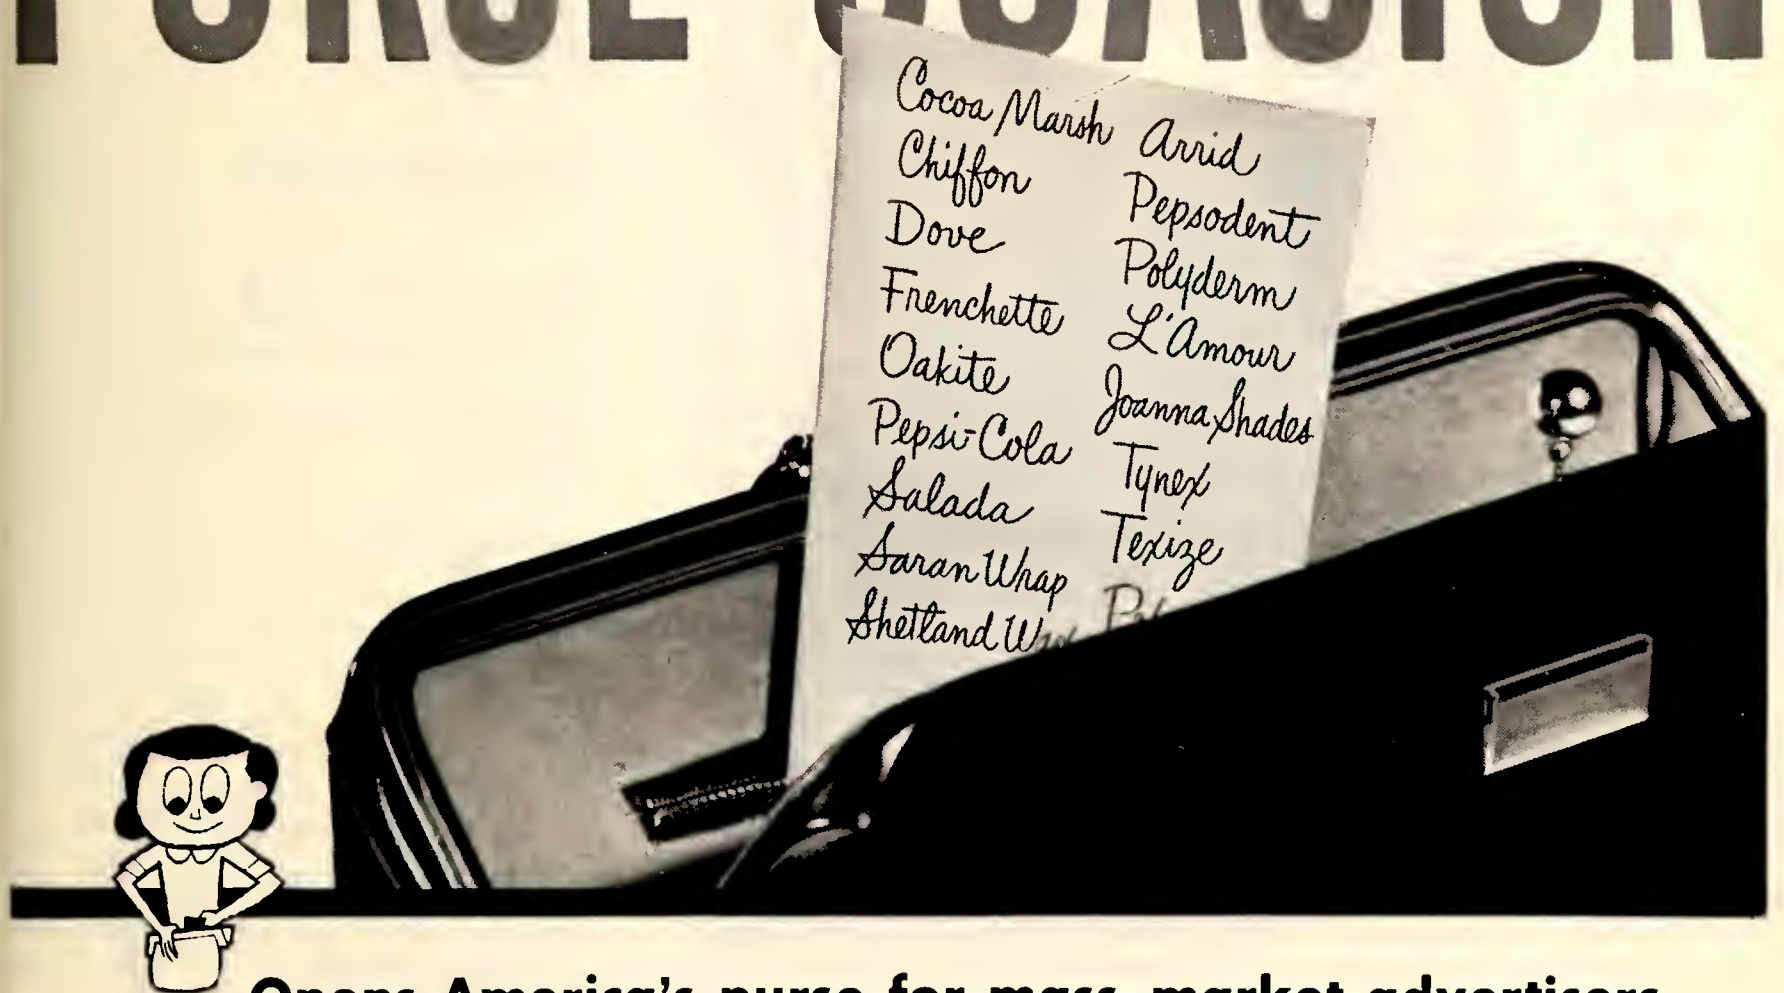 PURSE SUASION
Cocoa Marsh
Chiffon
Dove
Frenchette
Oakite
Pepsi-Cola
Salada
Saran Wrap
Shetland Wax
Arrid
Pepsodent
Polyderm
L'Amour
Joanna Shades
Tynex
Texize
Opens America's purse for mass-market advertisers